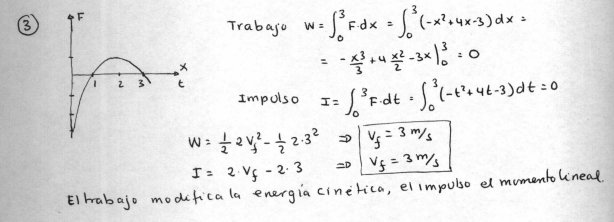 ③
F
x
t
1 2 3
Trabajo W = ∫₀³ F·dx = ∫₀³ (-x²+4x-3) dx =
= - x³/3 + 4 x²/2 - 3x |₀³ = 0
Impulso I = ∫₀³ F·dt = ∫₀³ (-t²+4t-3) dt = 0
W = 1/2 2 v_f² - 1/2 2·3² ⇒ v_f = 3 m/s
I = 2·v_f - 2·3 ⇒ v_f = 3 m/s
El trabajo modifica la energía cinética, el impulso el momento lineal.